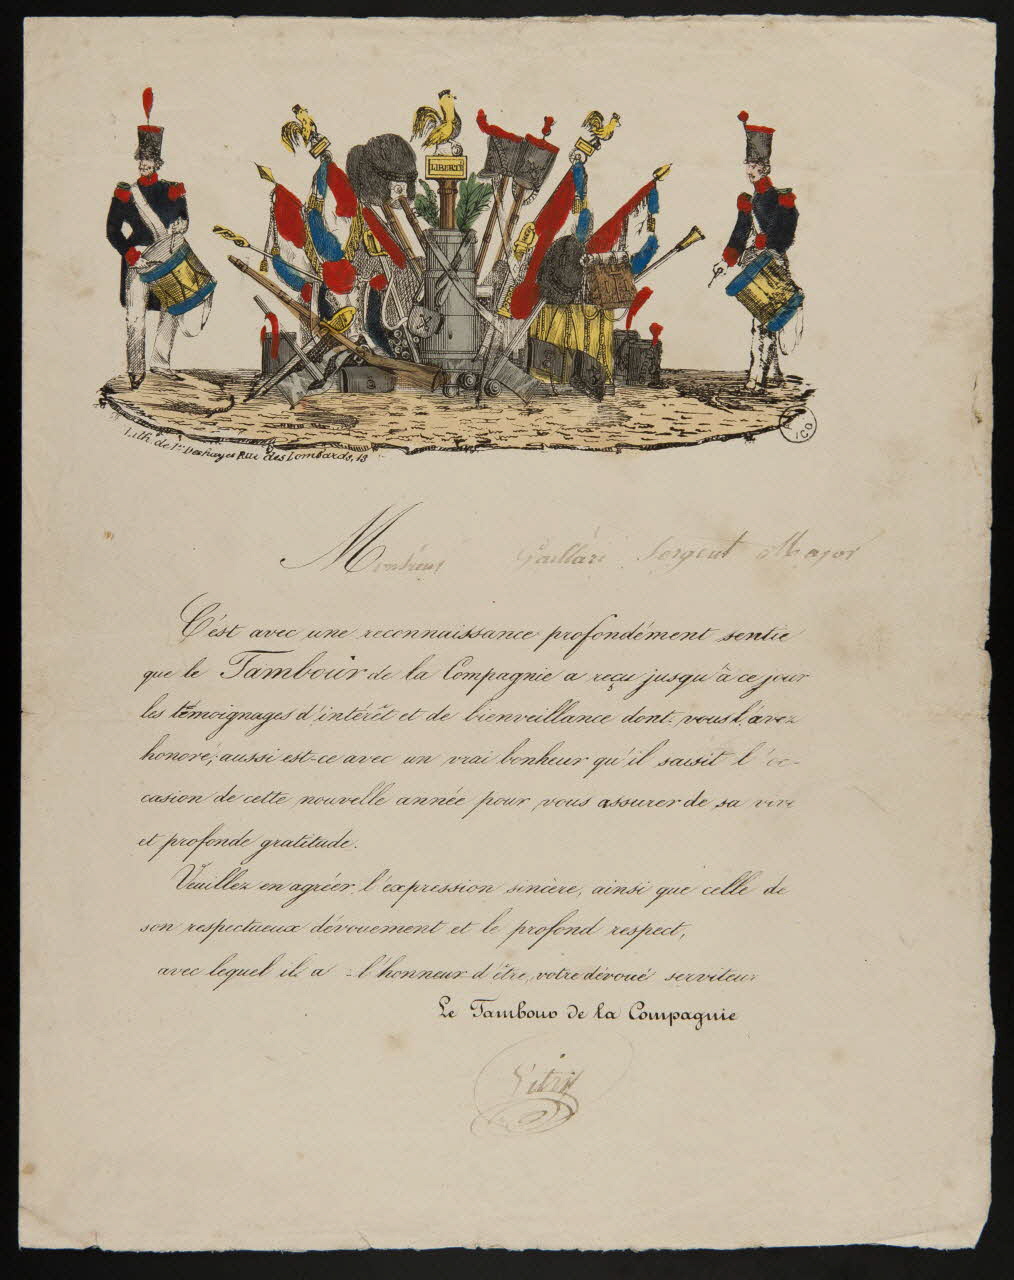 LIBERTÉ
Lith. de Deshayes Rue des Lombards, 13
Monsieur Gaillard Sergent Major
C'est avec une reconnaissance profondément sentie
que le Tambour de la Compagnie a reçu jusqu'à ce jour
les témoignages d'intérêt et de bienveillance dont vous l'avez
honoré; aussi est-ce avec un vrai bonheur qu'il saisit l'oc-
casion de cette nouvelle année pour vous assurer de sa vive
et profonde gratitude.
Veuillez en agréer l'expression sincère, ainsi que celle de
son respectueux dévouement et le profond respect,
avec lequel il a l'honneur d'être, votre dévoué serviteur
Le Tambour de la Compagnie